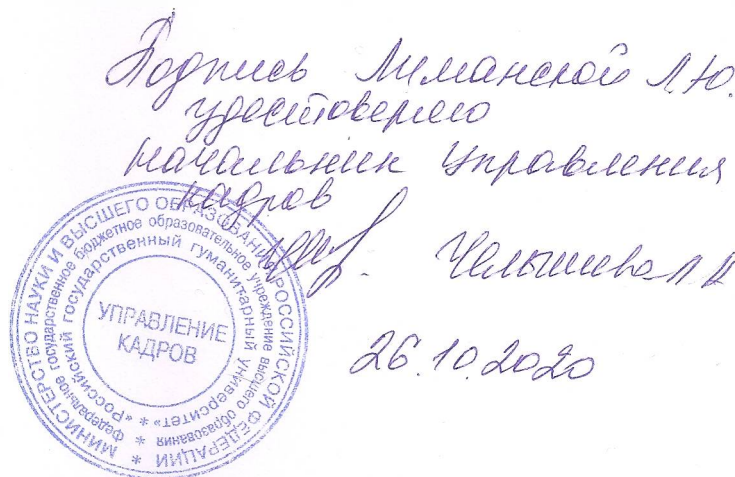 Подпись Лиманской Л.Ю.
удостоверяю
начальник управления
кадров
Челышева Л.
26.10.2020
МИНИСТЕРСТВО НАУКИ И ВЫСШЕГО ОБРАЗОВАНИЯ РОССИЙСКОЙ ФЕДЕРАЦИИ *
федеральное государственное бюджетное образовательное учреждение высшего образования *
«Российский государственный гуманитарный университет» *
УПРАВЛЕНИЕ
КАДРОВ